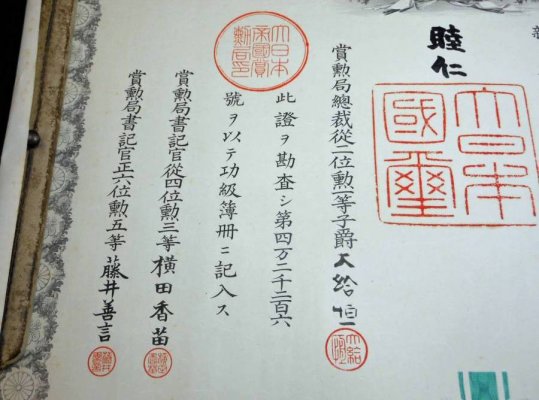 睦仁
大日本國璽
賞勲局總裁從二位勲一等子爵大給恒
大日本帝國賞勲局印
此證ヲ勘査シ第四万二千二百六
號ヲ以テ功級簿冊ニ記入ス
賞勲局書記官從四位勲三等横田香苗
賞勲局書記官正六位勲五等藤井善言